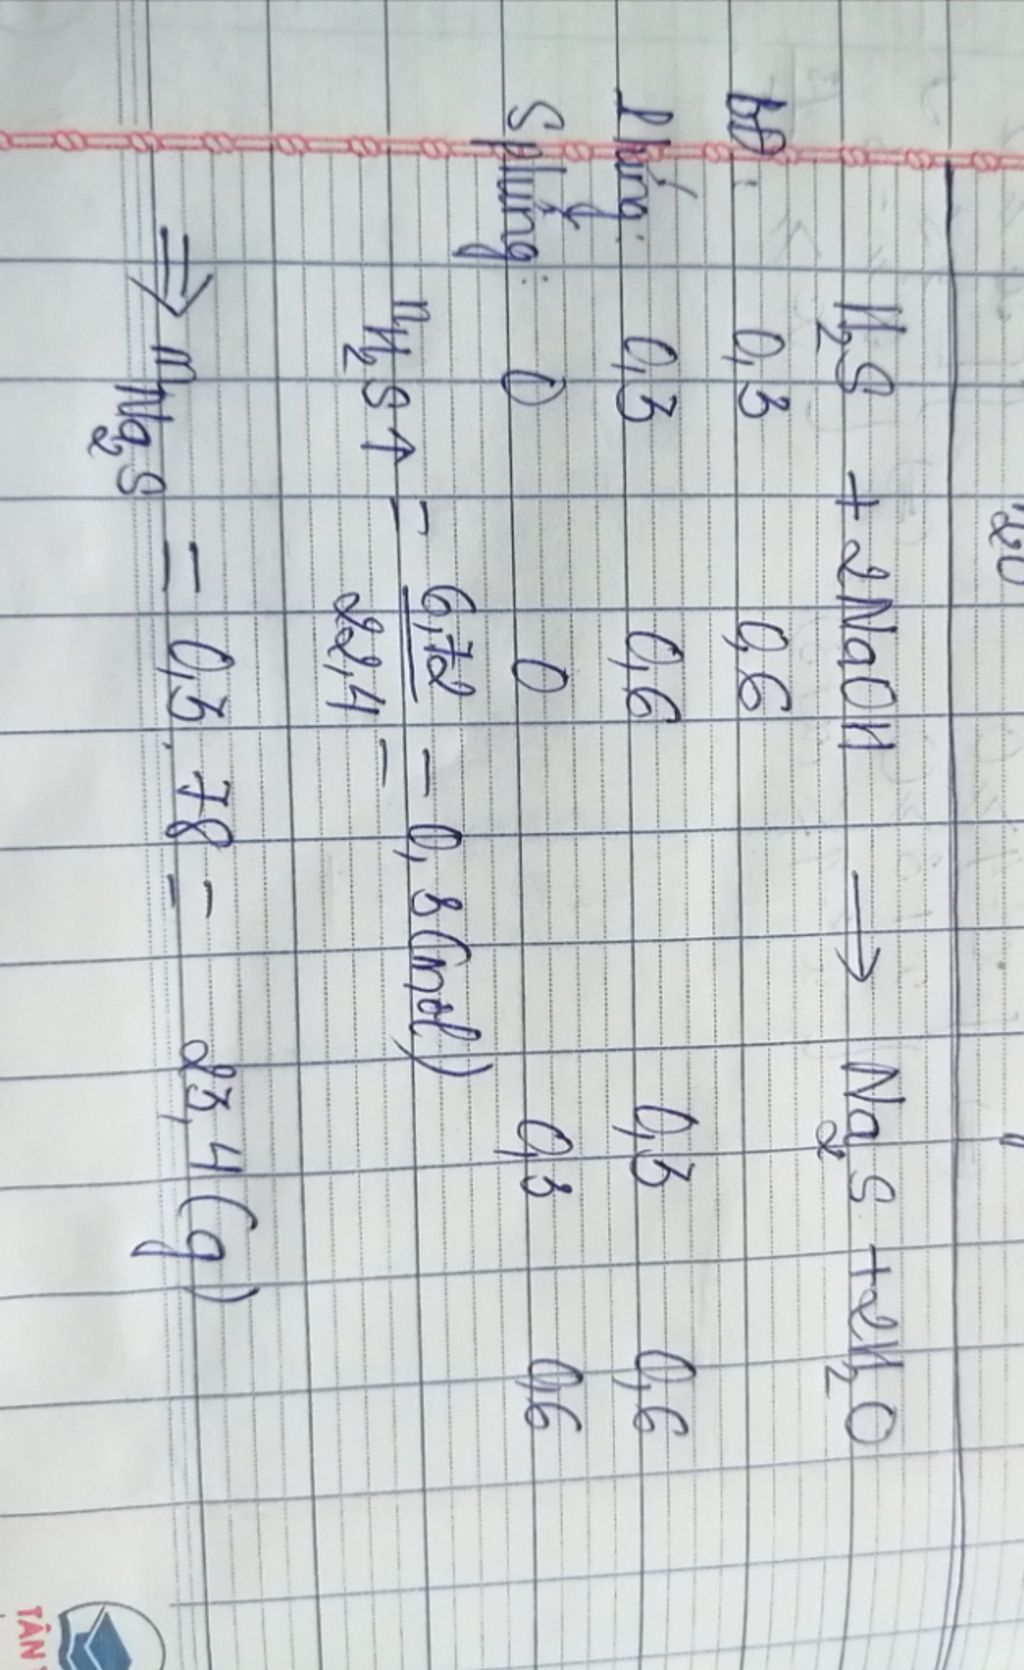 H₂S + 2NaOH → Na₂S + 2H₂O
bđ: 0,3 0,6
Phứng: 0,3 0,6 0,3 0,6
Sphứng: 0 0 0,3 0,6
nH₂S↑ = 6,72/22,4 = 0,3 (mol)
⇒ mNa₂S = 0,3 . 78 = 23,4 (g)
TÂN